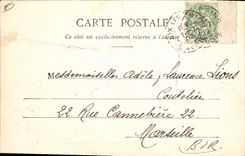 CARTE POSTALE
Ce côté est exclusivement réservé à l'adresse
Mesdemoiselles Adèle, Laurence Lions
Coutelier
22 Rue Cannebière 22
Marseille
B.d.R.